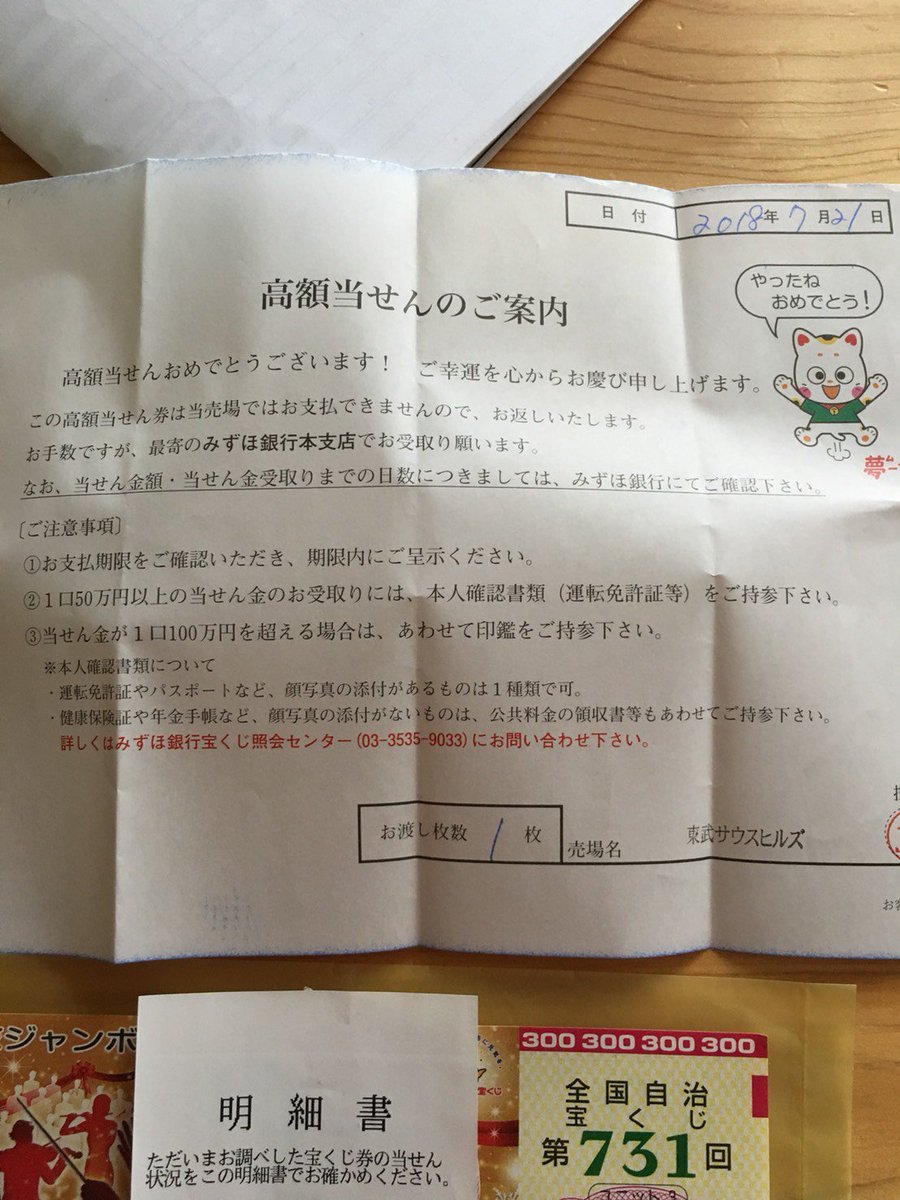 日付 2018年7月21日
やったね
おめでとう!
高額当せんのご案内
高額当せんおめでとうございます! ご幸運を心からお慶び申し上げます。
この高額当せん券は当売場ではお支払できませんので、お返しいたします。
お手数ですが、最寄のみずほ銀行本支店でお受取り願います。
なお、当せん金額・当せん金受取りまでの日数につきましては、みずほ銀行にてご確認下さい。
〔ご注意事項〕
①お支払期限をご確認いただき、期限内にご呈示ください。
②1口50万円以上の当せん金のお受取りには、本人確認書類(運転免許証等)をご持参下さい。
③当せん金が1口100万円を超える場合は、あわせて印鑑をご持参下さい。
※本人確認書類について
・運転免許証やパスポートなど、顔写真の添付があるものは1種類で可。
・健康保険証や年金手帳など、顔写真の添付がないものは、公共料金の領収書等もあわせてご持参下さい。
詳しくはみずほ銀行宝くじ照会センター(03-3535-9033)にお問い合わせ下さい。
お渡し枚数 1枚
売場名 東武サウスヒルズ
お客
ジャンボ
明細書
ただいまお調べした宝くじ券の当せん
状況をこの明細書でお確かめください。
宝くじ
300 300 300 300
全国自治
宝くじ
第731回